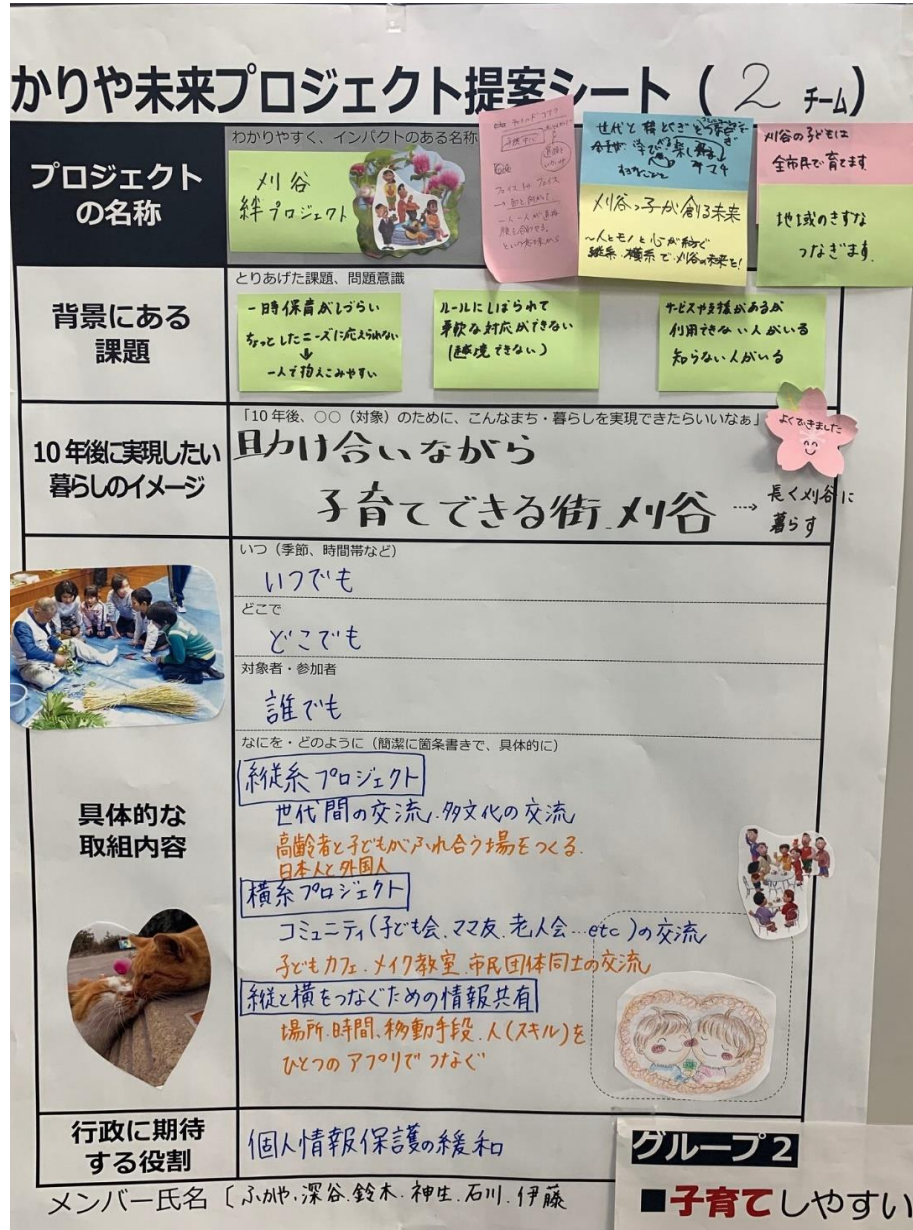 かりや未来プロジェクト提案シート ( 2 チーム)
プロジェクト
の名称
わかりやすく、インパクトのある名称
刈谷
絆プロジェクト
フェイス to フェイス
一人一人が
という意味から
世代と
刈谷っ子が創る未来
〜人とモノと心が紡ぐ
縦糸・横糸で刈谷の未来を!
刈谷の子どもは
全市民で育てます
地域のきずな
つなぎます。
背景にある
課題
とりあげた課題、問題意識
一時保育がしづらい
ちょっとしたニーズに応えられない
↓
一人で抱えこみやすい
ルールにしばられて
柔軟な対応ができない
(越境できない)
サービスや支援があるが
利用できない人がいる
知らない人がいる
10年後に実現したい
暮らしのイメージ
「10年後、○○(対象)のために、こんなまち・暮らしを実現できたらいいなぁ」
よくできました
助け合いながら
子育てできる街 刈谷
長く刈谷に
暮らす
具体的な
取組内容
いつ(季節、時間帯など)
いつでも
どこで
どこでも
対象者・参加者
誰でも
なにを・どのように(簡潔に箇条書きで、具体的に)
縦糸プロジェクト
世代間の交流、多文化の交流
高齢者と子どもがふれ合う場をつくる.
日本人と外国人
横糸プロジェクト
コミュニティ(子ども会、ママ友、老人会…etc)の交流
子どもカフェ・メイク教室・市民団体同士の交流
縦と横をつなぐための情報共有
場所、時間、移動手段、人(スキル)を
ひとつのアプリでつなぐ
行政に期待
する役割
個人情報保護の緩和
メンバー氏名 〔ふかや、深谷、鈴木、神生、石川、伊藤
グループ2
■子育てしやすい